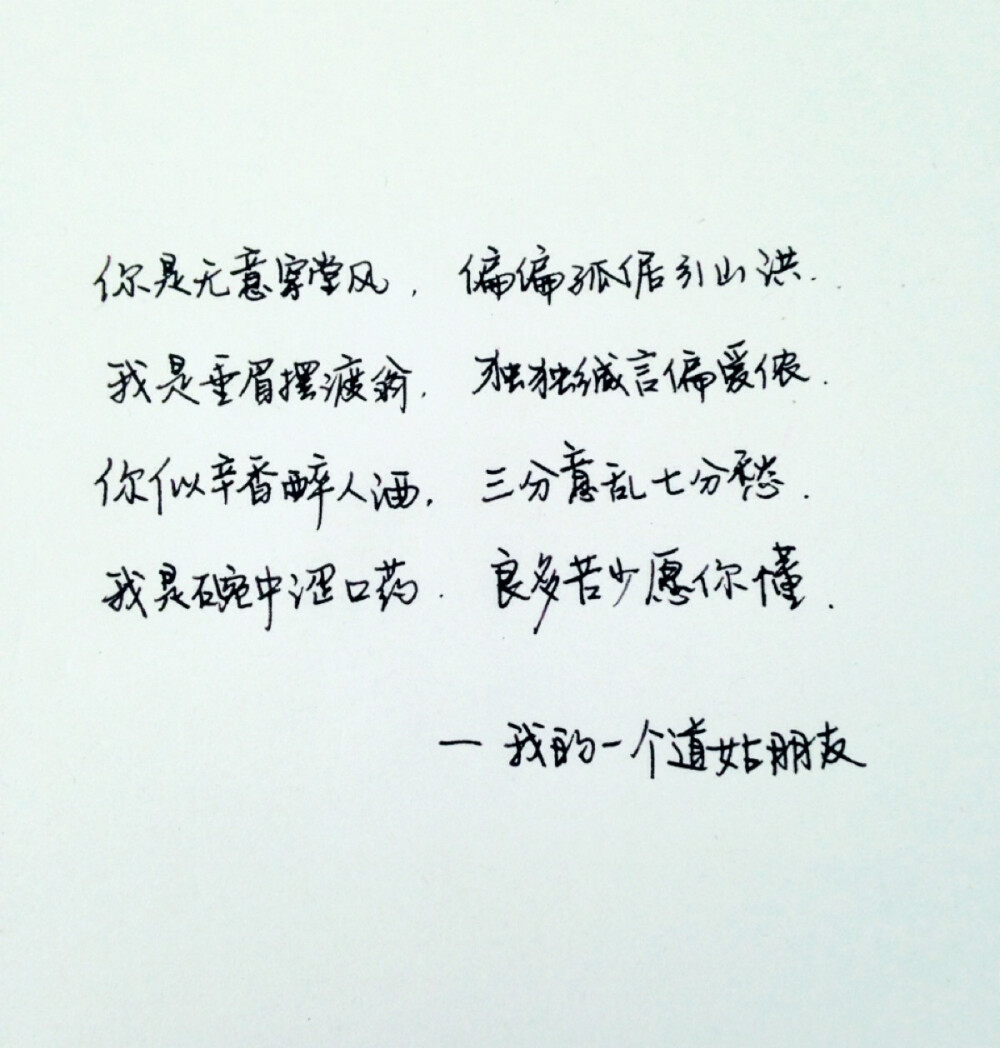 你是无意穿堂风，偏偏孤倨引山洪.
我是垂眉摆渡翁，独独缄言偏爱侬.
你似辛香醉人酒，三分意乱七分愁.
我是碗中涩口药.良多苦少愿你懂.
一我的一个道姑朋友